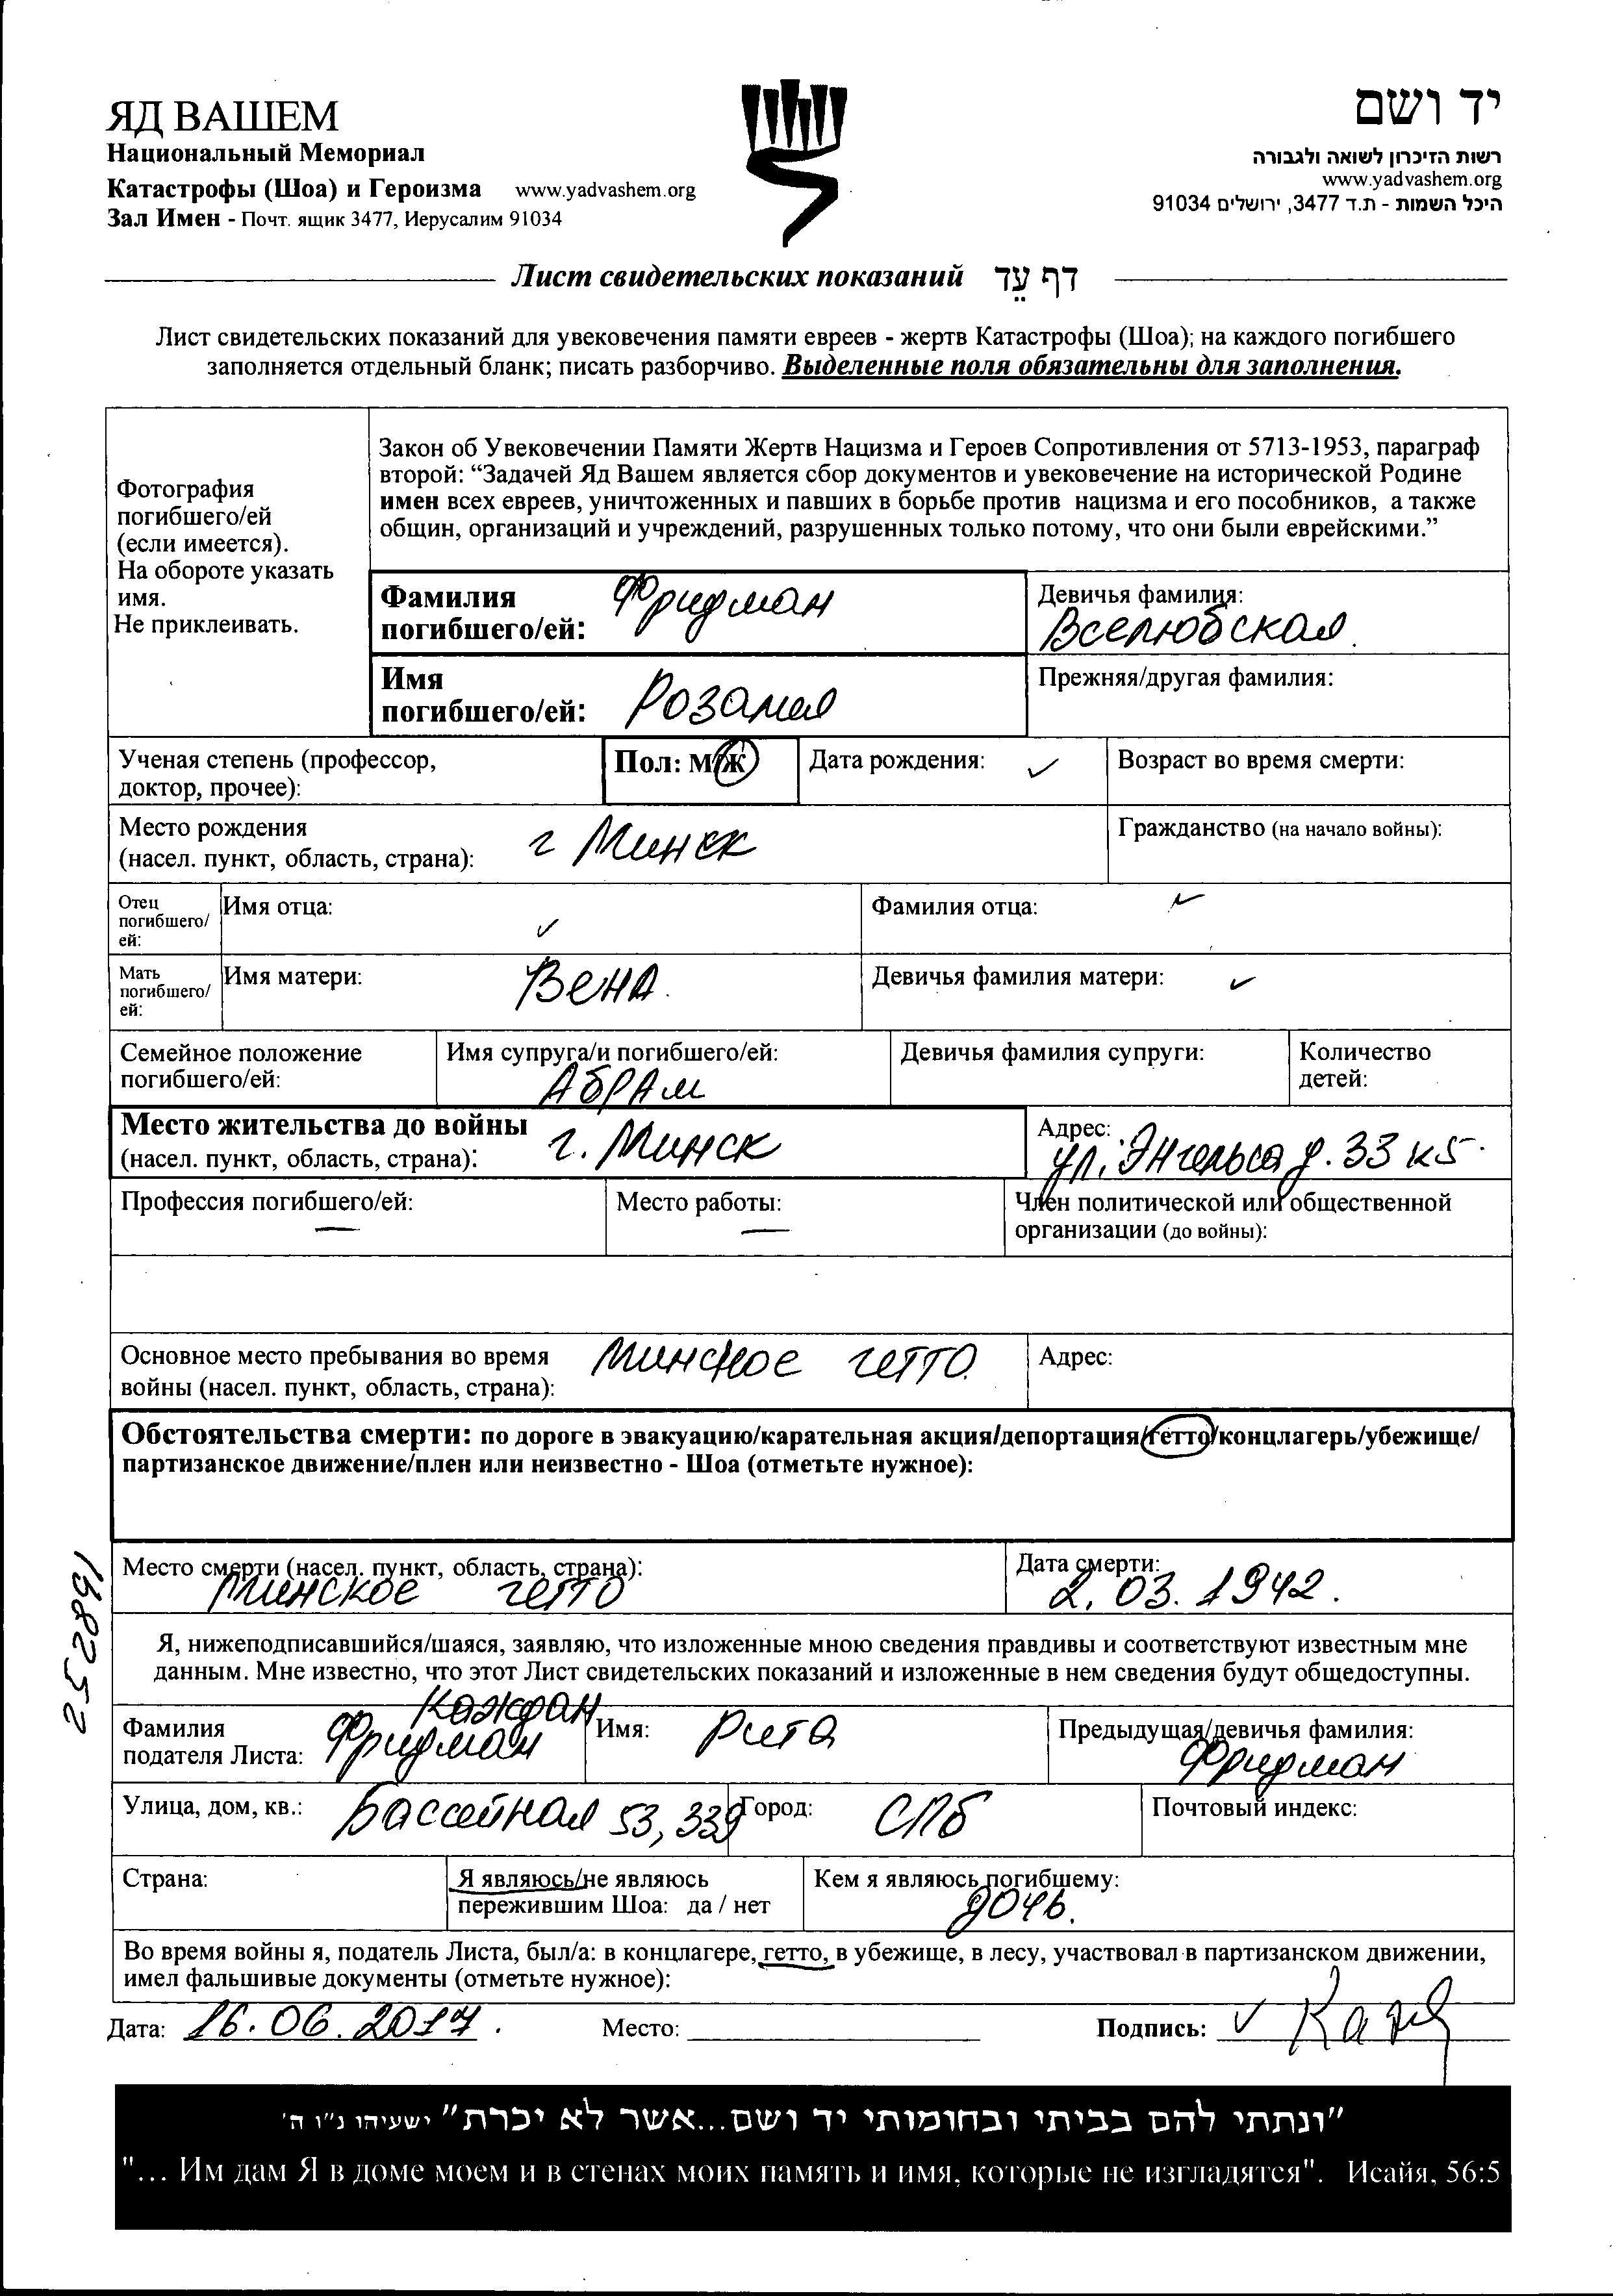 ЯД ВАШЕМ
Национальный Мемориал
Катастрофы (Шоа) и Героизма www.yadvashem.org
Зал Имен - Почт. ящик 3477, Иерусалим 91034
יד ושם
רשות הזיכרון לשואה ולגבורה
www.yadvashem.org
היכל השמות - ת.ד 3477, ירושלים 91034
Лист свидетельских показаний דף עֵד
Лист свидетельских показаний для увековечения памяти евреев - жертв Катастрофы (Шоа); на каждого погибшего
заполняется отдельный бланк; писать разборчиво. Выделенные поля обязательны для заполнения.
Фотография
погибшего/ей
(если имеется).
На обороте указать
имя.
Не приклеивать.
Закон об Увековечении Памяти Жертв Нацизма и Героев Сопротивления от 5713-1953, параграф
второй: “Задачей Яд Вашем является сбор документов и увековечение на исторической Родине
имен всех евреев, уничтоженных и павших в борьбе против нацизма и его пособников, а также
общин, организаций и учреждений, разрушенных только потому, что они были еврейскими.”
Фамилия
погибшего/ей: Фридман
Девичья фамилия:
Вселюбская.
Имя
погибшего/ей: Розалия
Прежняя/другая фамилия:
Ученая степень (профессор,
доктор, прочее):
Пол: М/Ж
Дата рождения: ✓
Возраст во время смерти:
Место рождения
(насел. пункт, область, страна): г Минск
Гражданство (на начало войны):
Отец
погибшего/
ей:
Имя отца: ✓
Фамилия отца: ✓
Мать
погибшего/
ей:
Имя матери: Вена.
Девичья фамилия матери: ✓
Семейное положение
погибшего/ей:
Имя супруга/и погибшего/ей:
Абрам
Девичья фамилия супруги:
Количество
детей:
Место жительства до войны
(насел. пункт, область, страна): г. Минск
Адрес:
ул. Энгельса д. 33 к5
Профессия погибшего/ей:
—
Место работы:
—
Член политической или общественной
организации (до войны):
Основное место пребывания во время
войны (насел. пункт, область, страна): Минское гетто
Адрес:
Обстоятельства смерти: по дороге в эвакуацию/карательная акция/депортация/гетто/концлагерь/убежище/
партизанское движение/плен или неизвестно - Шоа (отметьте нужное):
Место смерти (насел. пункт, область, страна):
Минское гетто
Дата смерти:
2. 03. 1942.
2522891
Я, нижеподписавшийся/шаяся, заявляю, что изложенные мною сведения правдивы и соответствуют известным мне
данным. Мне известно, что этот Лист свидетельских показаний и изложенные в нем сведения будут общедоступны.
Каждан
Фамилия
подателя Листа: Фридман
Имя: Рита
Предыдущая/девичья фамилия:
Фридман
Улица, дом, кв.: Бассейная 53, 339
Город: СПб
Почтовый индекс:
Страна:
Я являюсь/не являюсь
пережившим Шоа: да / нет
Кем я являюсь погибшему:
дочь.
Во время войны я, податель Листа, был/а: в концлагере, гетто, в убежище, в лесу, участвовал в партизанском движении,
имел фальшивые документы (отметьте нужное):
Дата: 16. 06. 2017.
Место:
Подпись: ✓
"ונתתי להם בביתי ובחומותי יד ושם...אשר לא יכרת" ישעיהו נ"ו ה'
"... Им дам Я в доме моем и в стенах моих память и имя, которые не изгладятся". Исайя, 56:5